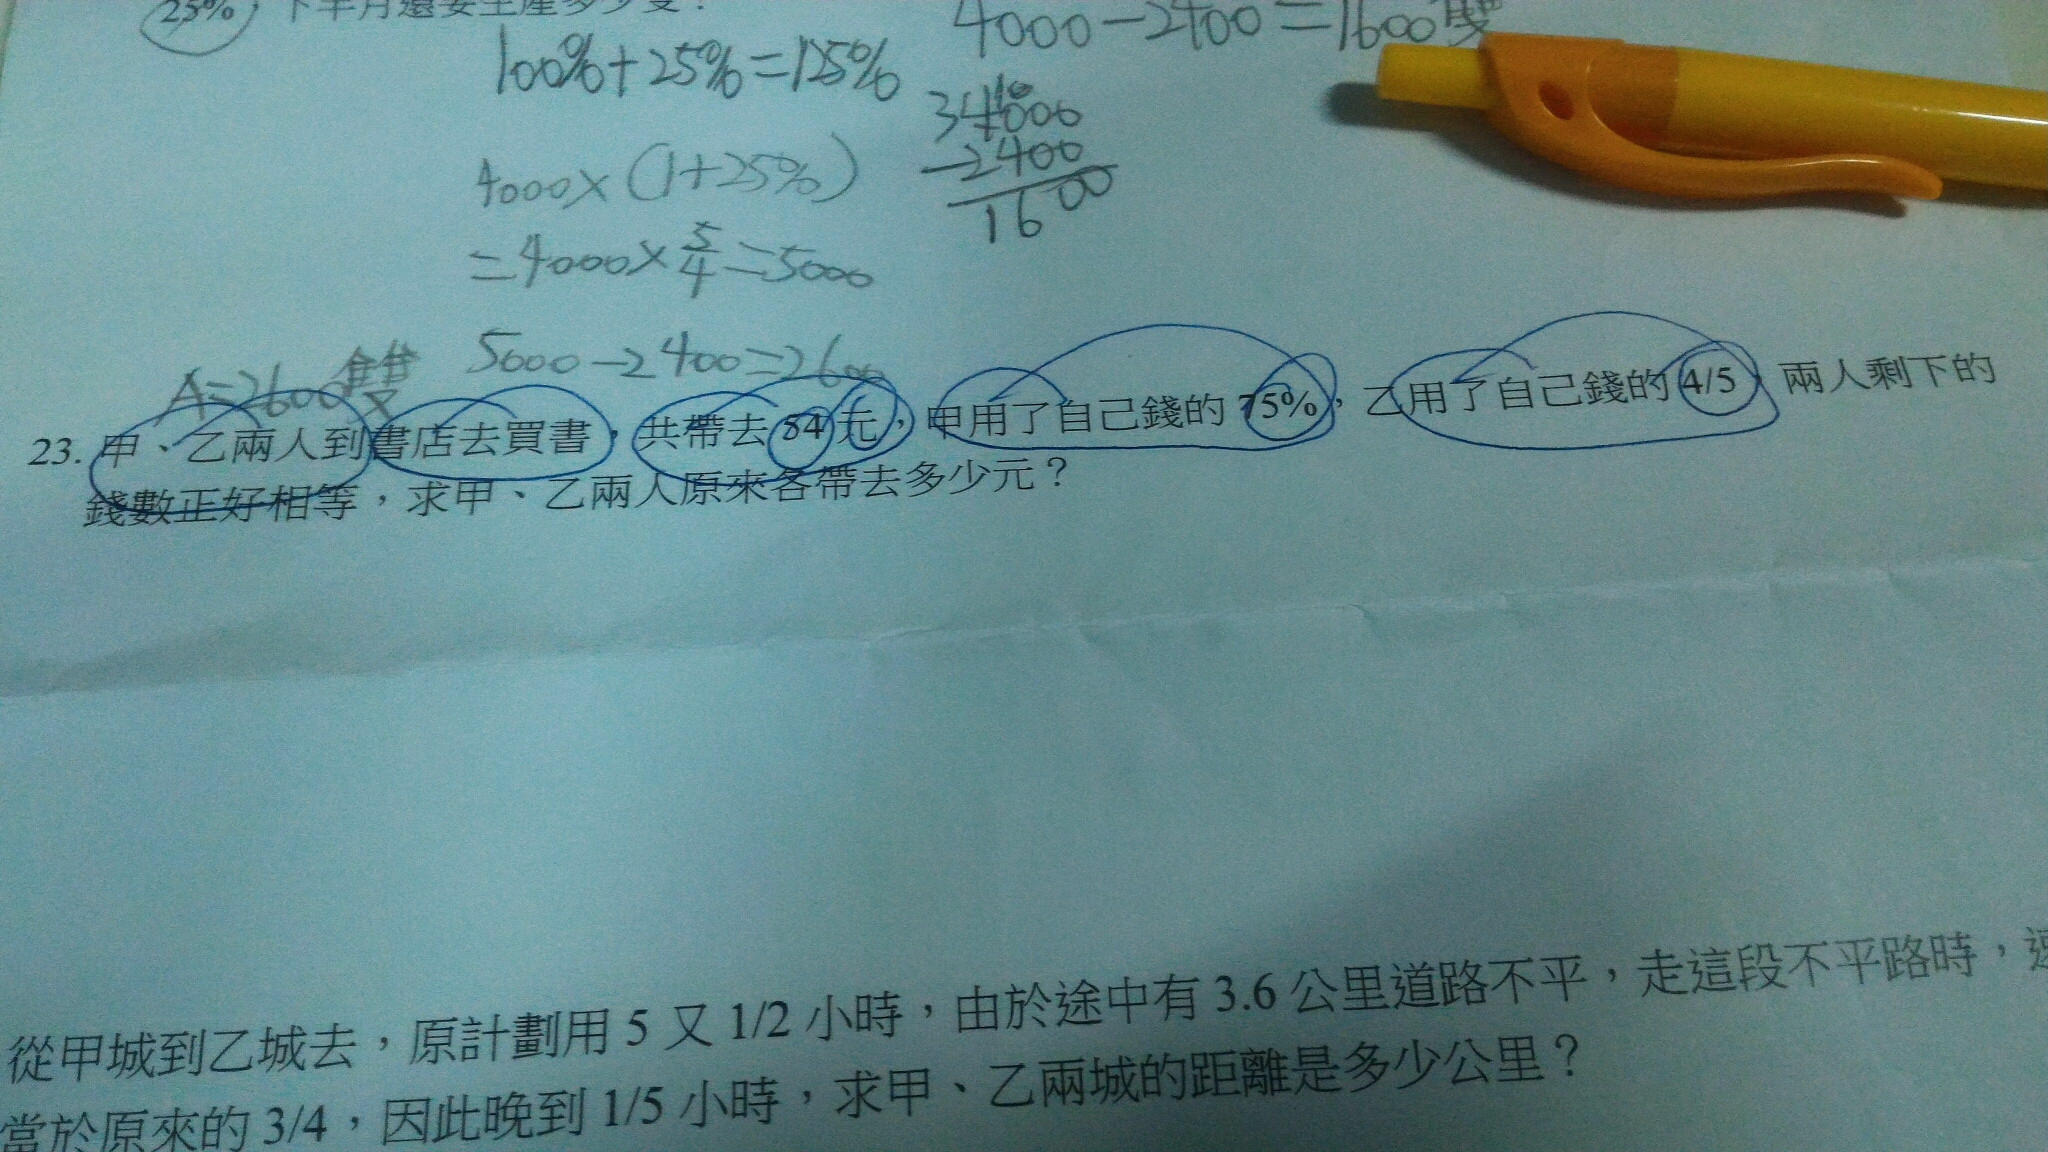 25%，下半月還要生產多少雙？
100%+25%=125%
4000-2400=1600雙
34000
-2400
1600
4000×(1+25%)
=4000×5/4=5000
5000-2400=2600
A=2600雙
23. 甲、乙兩人到書店去買書，共帶去 54 元，甲用了自己錢的 75%，乙用了自己錢的 4/5，兩人剩下的
錢數正好相等，求甲、乙兩人原來各帶去多少元？
從甲城到乙城去，原計劃用 5 又 1/2 小時，由於途中有 3.6 公里道路不平，走這段不平路時，速
當於原來的 3/4，因此晚到 1/5 小時，求甲、乙兩城的距離是多少公里？